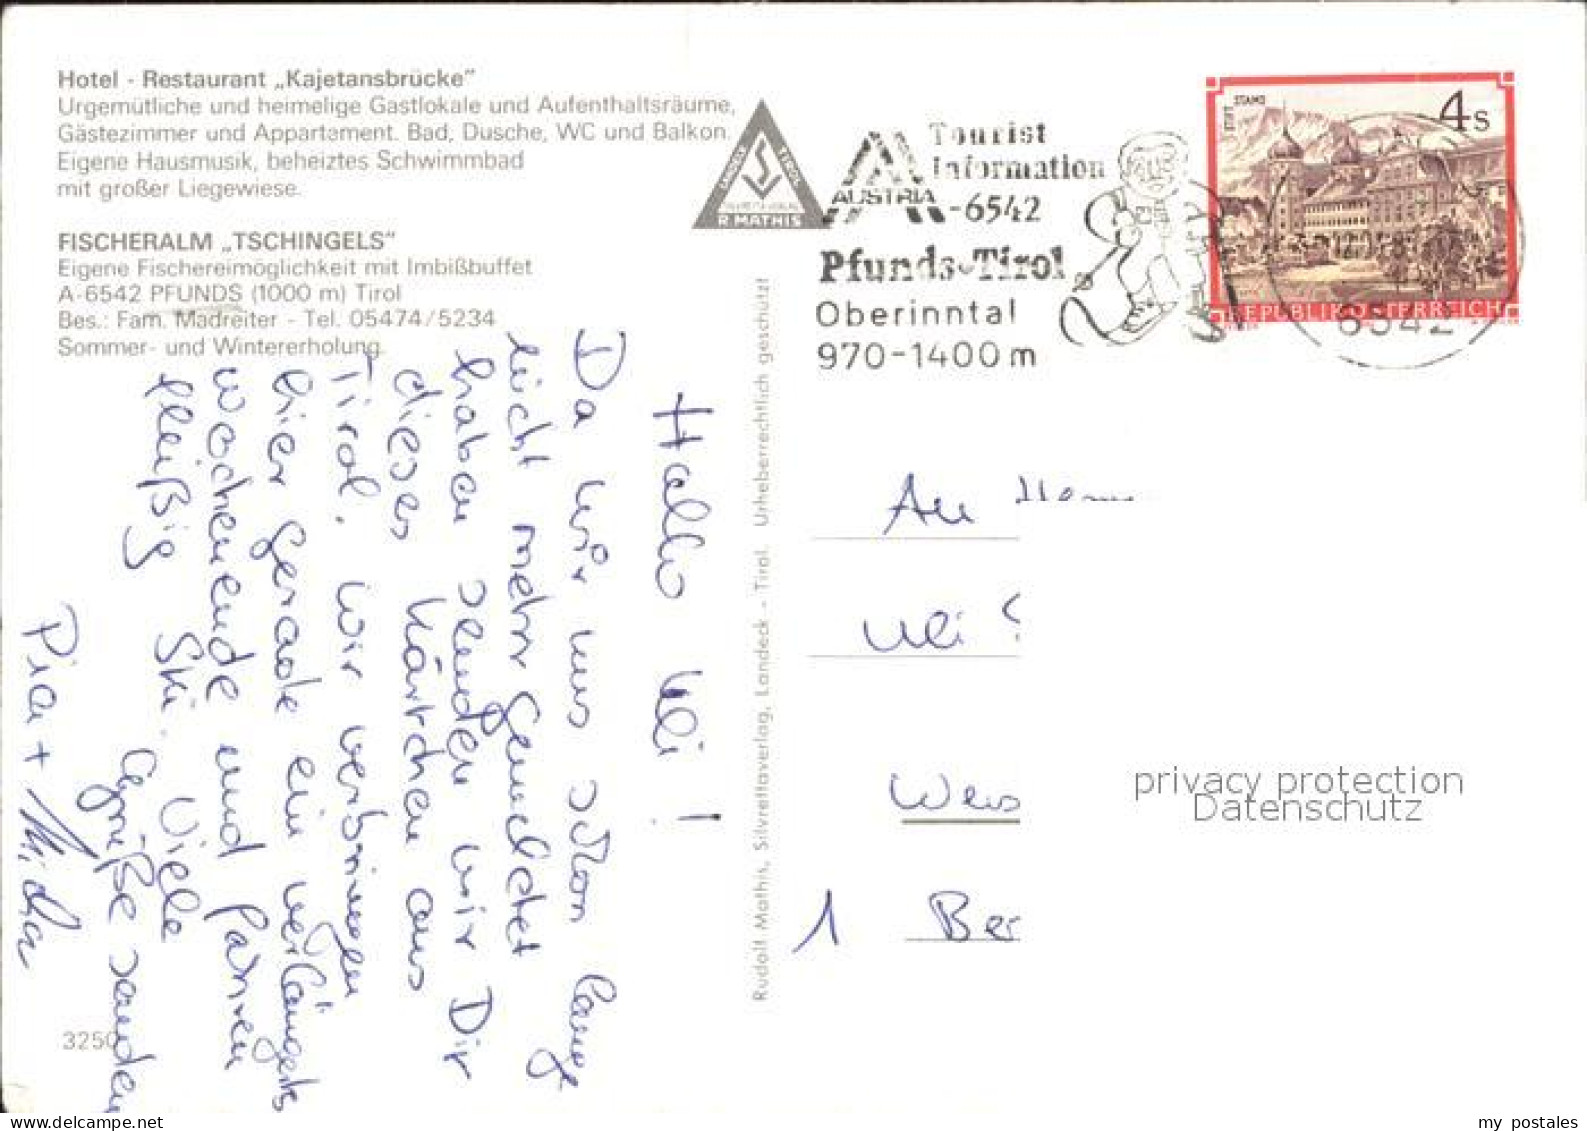 Hotel - Restaurant „Kajetansbrücke“
Urgemütliche und heimelige Gastlokale und Aufenthaltsräume,
Gästezimmer und Appartament. Bad, Dusche, WC und Balkon.
Eigene Hausmusik, beheiztes Schwimmbad
mit großer Liegewiese.
FISCHERALM „TSCHINGELS“
Eigene Fischereimöglichkeit mit Imbißbuffet
A-6542 PFUNDS (1000 m) Tirol
Bes.: Fam. Madreiter - Tel. 05474/5234
Sommer- und Wintererholung.
Hallo Uli!
Da wir uns schon lange
nicht mehr gemeldet
haben senden wir Dir
dieses Kärtchen aus
Tirol. Wir verbringen
hier gerade ein verlängertes
Wochenende und fahren
fleißig Ski. Viele
Grüße senden
Pia + Micha
3250
Rudolf Mathis, Silvrettaverlag, Landeck - Tirol. Urheberrechtlich geschützt
LANDECK TIROL
SILVRETTAVERLAG
R.MATHIS
AUSTRIA
Tourist
Information
-6542
Pfunds-Tirol
Oberinntal
970-1400m
STIFT STAMS
4s
REPUBLIK ÖSTERREICH
6542
An
Uli
Weis
1 Ber
privacy protection
Datenschutz
my postales